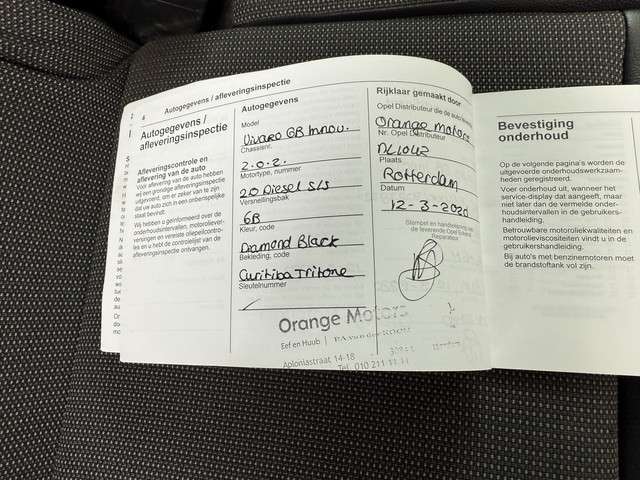 4 Autogegevens / afleveringsinspectie
Autogegevens /
afleveringsinspectie
Afleveringscontrole en
aflevering van de auto
Voor aflevering van de auto hebben
wij een grondige afleveringsinspectie
uitgevoerd, om er zeker van te zijn
dat uw auto zich in een onberispelijke
staat bevindt.
Wij hebben u geïnformeerd over de
onderhoudsintervallen, motoroliever-
versingen en vereiste oliepeilcontro-
les en u hebt de controlelijst van de
afleveringsinspectie ontvangen.
Autogegevens
Model
Vivaro GB Innov.
Chassisnr.
2.0.2.
Motortype, nummer
2.0 Diesel S/S
Versnellingsbak
6B
Kleur, code
Diamond Black
Bekleding, code
Curitiba Tritone
Sleutelnummer
Rijklaar gemaakt door
Opel Distributeur die de auto
Orange motors
Nr. Opel Distributeur
NL1042
Plaats
Rotterdam
Datum
12-3-2020
Stempel en handtekening van
de leverende Opel Erkend
Reparateur
Orange Motors
Eef en Huub
Aploniastraat 14-18
Tel. 010 211 11 11
Bevestiging
onderhoud
Op de volgende pagina's worden de
uitgevoerde onderhoudswerkzaam-
heden geregistreerd.
Voer onderhoud uit, wanneer het
service-display dat aangeeft, maar
niet later dan de vermelde onder-
houdsintervallen in de gebruikers-
handleiding.
Betrouwbare motoroliekwaliteiten en
motorolieviscositeiten vindt u in de
gebruikershandleiding.
Bij auto's met benzinemotoren moet
de brandstoftank vol zijn.